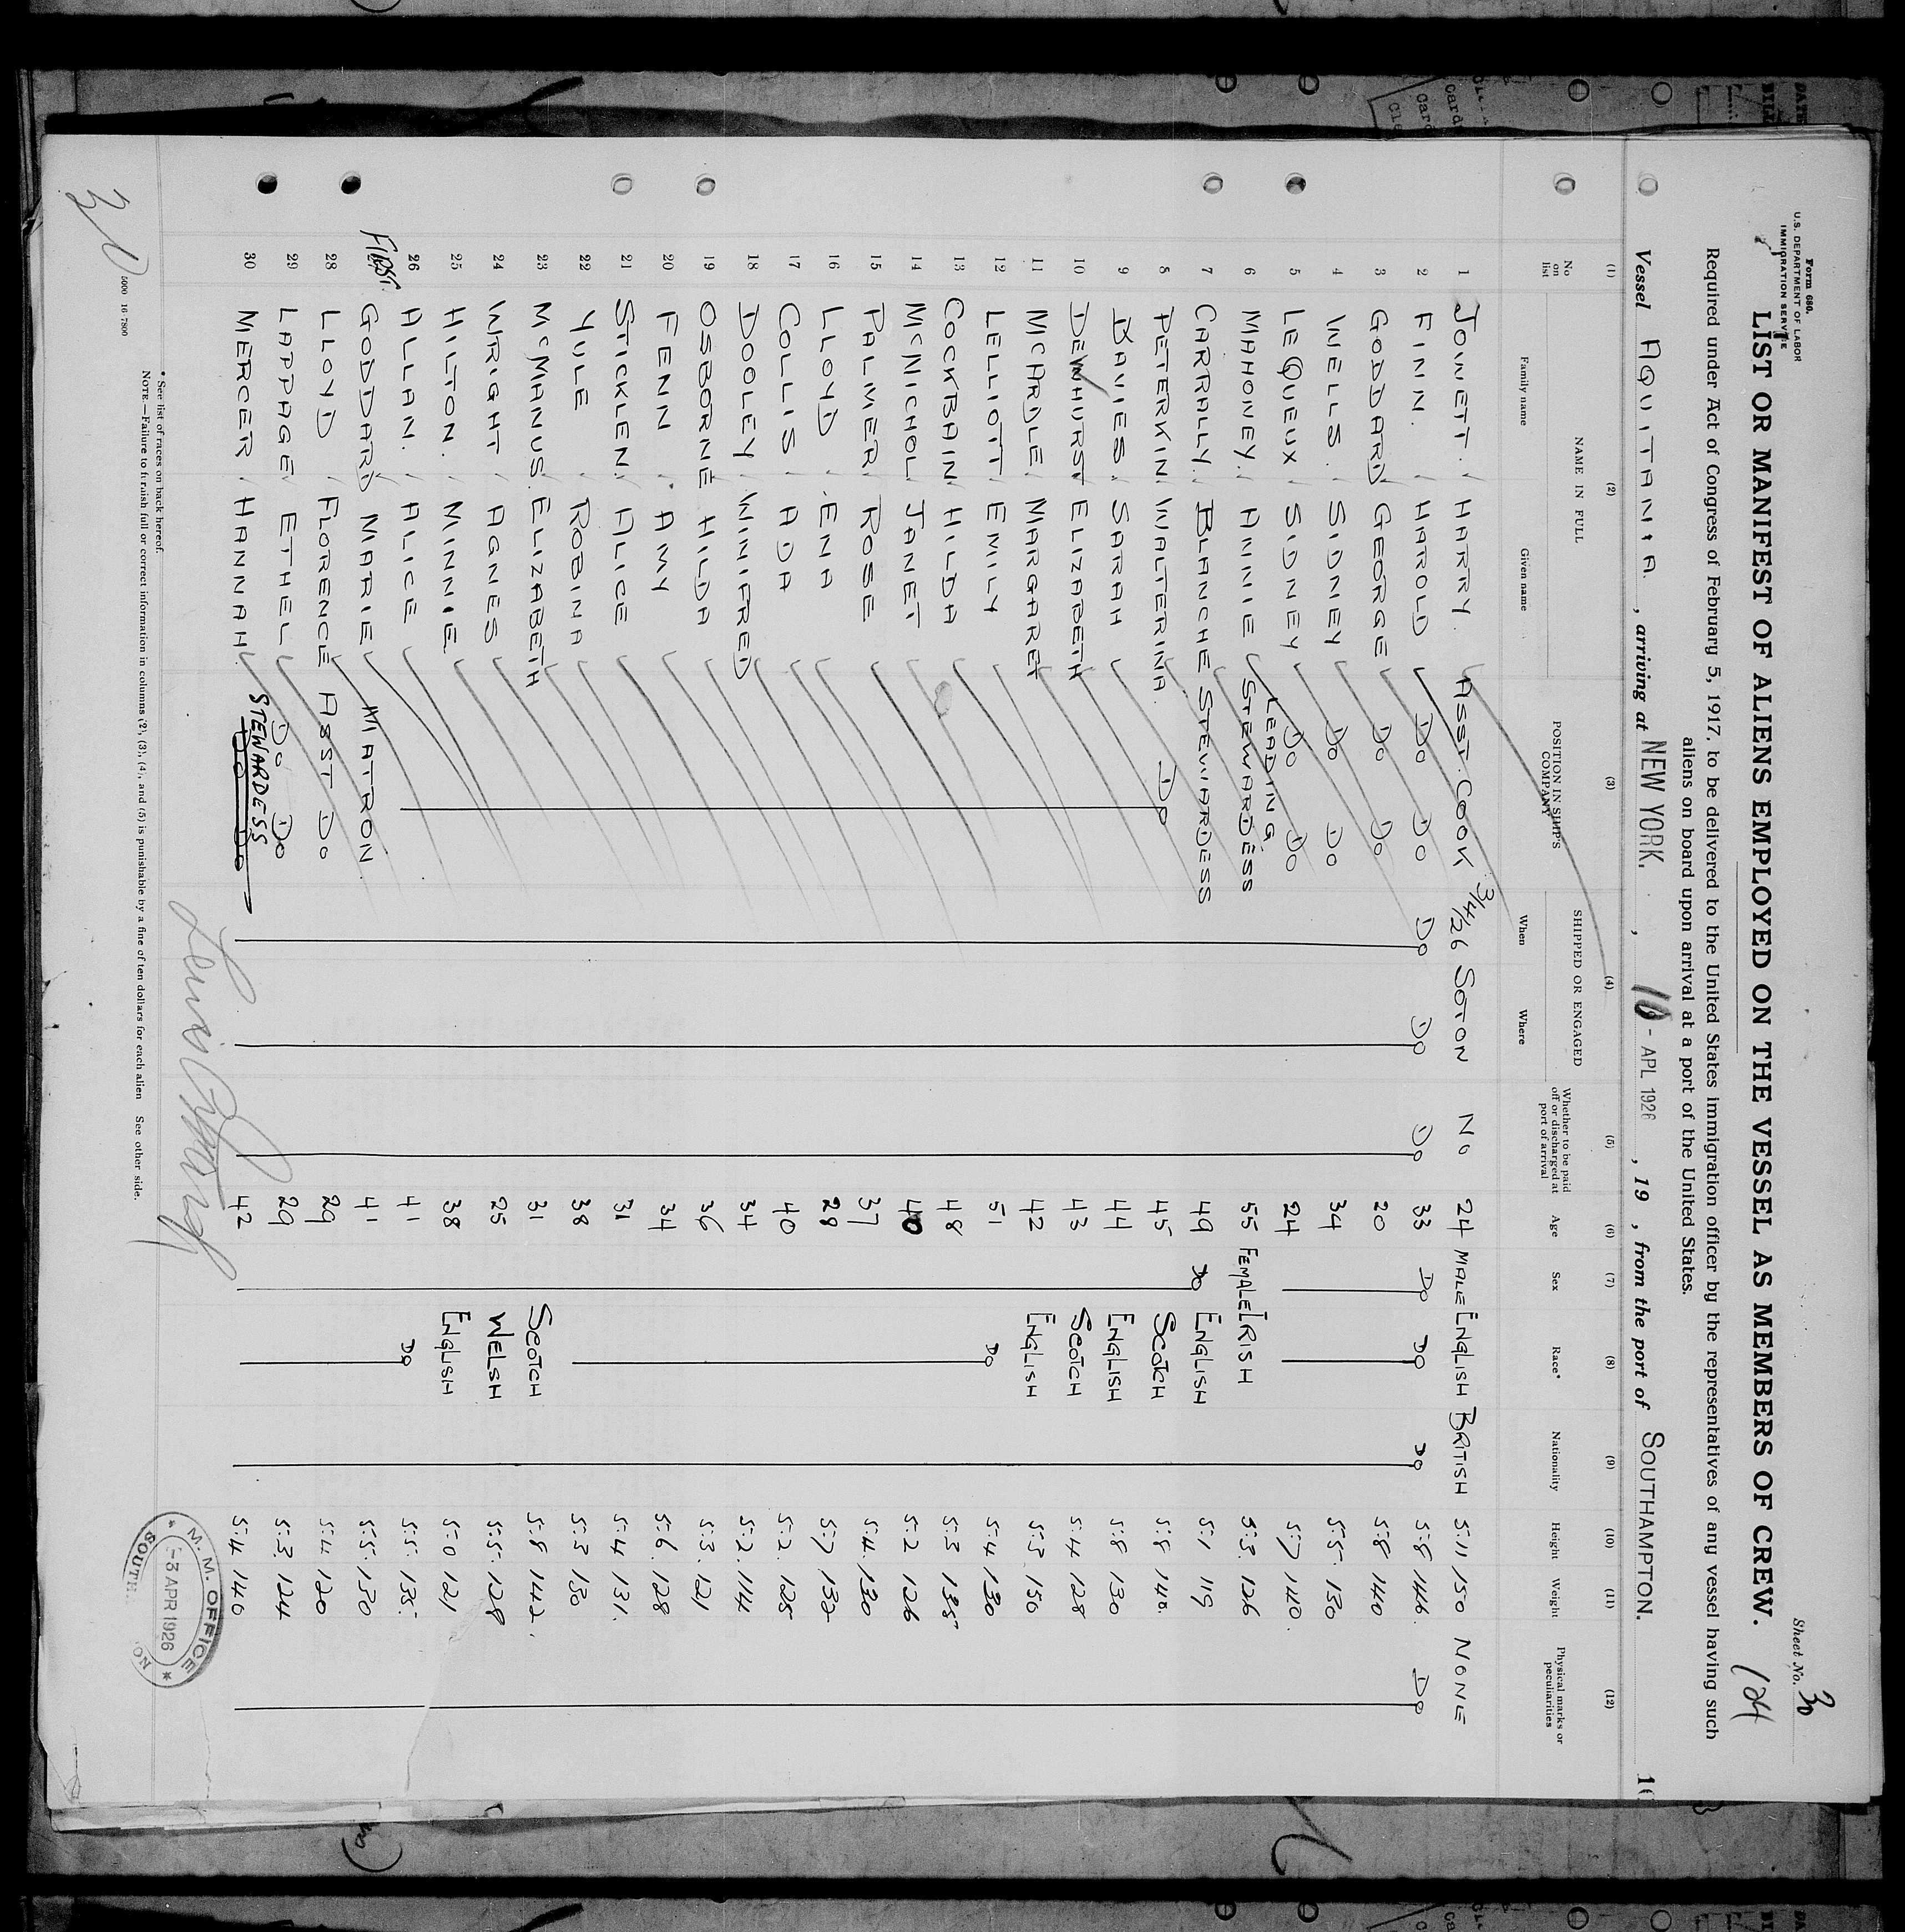 Form 680.
U.S. DEPARTMENT OF LABOR
IMMIGRATION SERVICE
Sheet No. 30
LIST OR MANIFEST OF ALIENS EMPLOYED ON THE VESSEL AS MEMBERS OF CREW. 124
Required under Act of Congress of February 5, 1917, to be delivered to the United States immigration officer by the representatives of any vessel having such
aliens on board upon arrival at a port of the United States.
Vessel AQUITANIA. , arriving at NEW YORK. , 10 - APL 1926 , 19 , from the port of SOUTHAMPTON.
(1) (2) (3) (4) (5) (6) (7) (8) (9) (10) (11) (12)
No on list NAME IN FULL Family name Given name POSITION IN SHIP'S COMPANY SHIPPED OR ENGAGED When Where Whether to be paid off or discharged at port of arrival Age Sex Race* Nationality Height Weight Physical marks or peculiarities
1 JOWETT. HARRY. ASST. COOK 3/4/26 SOTON NO 24 MALE ENGLISH BRITISH 5:11 150 NONE
2 FINN. HAROLD DO DO DO DO DO 33 DO DO DO 5:8 146. DO
3 GODDARD GEORGE DO DO 20 5:8 140
4 WELLS. SIDNEY DO DO 34 5:5 130
5 LE QUEUX SIDNEY DO DO 24 5:7 140.
6 MAHONEY. ANNIE LEADING STEWARDESS 55 FEMALE IRISH 5:3. 126
7 CARRALLY. BLANCHE STEWARDESS 49 DO ENGLISH 5:1 119
8 PETERKIN WALTERINA. DO 45 SCOTCH 5:8 140.
9 DAVIES. SARAH 44 ENGLISH 5:8 130
10 DEWHURST ELIZABETH 43 SCOTCH 5:4 128
11 MCARDLE MARGARET 42 ENGLISH 5:3 150
12 LELLIOTT EMILY 51 DO 5:4 130
13 COCKBAIN HILDA 48 5:3 135
14 MCNICHOL JANET 40 5:2 126
15 PALMER ROSE 37 5:4. 130
16 LLOYD ENA 28 5:7 132
17 COLLIS ADA 40 5:2. 125
18 DOOLEY WINIFRED 34 5:2. 114
19 OSBORNE HILDA 36 5:3. 121
20 FENN AMY 34 5:6. 128
21 STICKLEN ALICE 31 5:4 131.
22 YULE ROBINA 38 5:3 130
23 MCMANUS. ELIZABETH 31 SCOTCH 5:8 142.
24 WRIGHT AGNES 25 WELSH 5:5. 128
25 HILTON. MINNIE 38 ENGLISH 5:0 121
26 ALLAN. ALICE 41 DO 5:5. 135.
FIRST. GODDARD MARIE MATRON 41 5:5. 130
28 LLOYD FLORENCE ASST DO 29 5:4 120
29 LAPPAGE ETHEL DO DO 29 5:3. 124
30 MERCER HANNAH. STEWARDESS DO DO 42 5:4 140
* See list of races on back hereof.
NOTE.—Failure to furnish full or correct information in columns (2), (3), (4), and (5) is punishable by a fine of ten dollars for each alien See other side.
30
M. M. OFFICE
-3 APR 1926